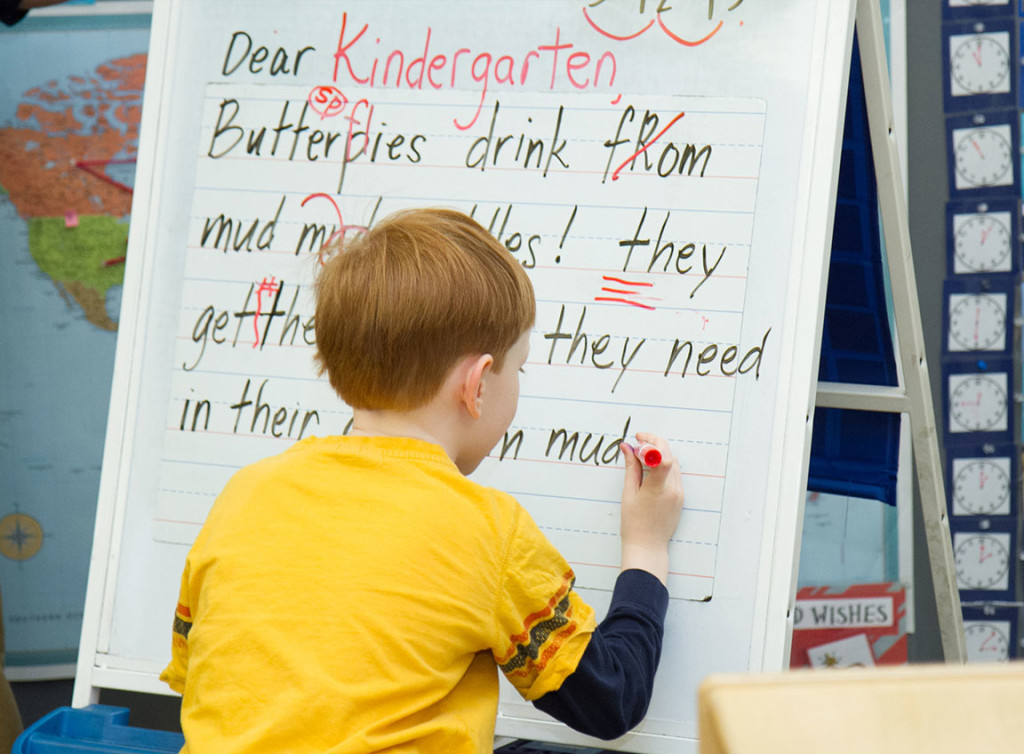 Dear Kindergarten,
sp
Butterflies drink fRom
mud ! they
get the they need
in their mud
D WISHES
SOUTHERN